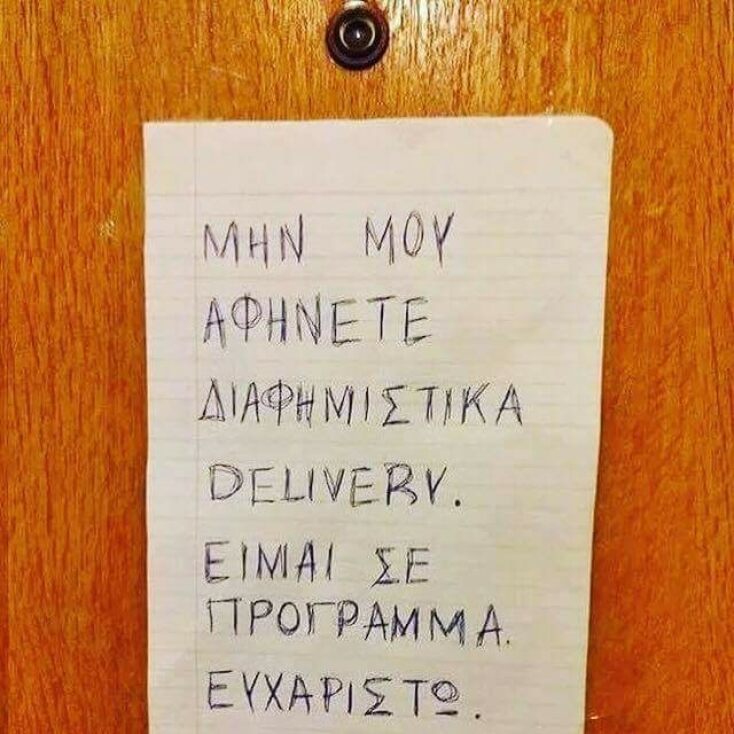 ΜΗΝ ΜΟΥ
ΑΦΗΝΕΤΕ
ΔΙΑΦΗΜΙΣΤΙΚΑ
DELIVERY.
ΕΙΜΑΙ ΣΕ
ΠΡΟΓΡΑΜΜΑ.
ΕΥΧΑΡΙΣΤΩ.